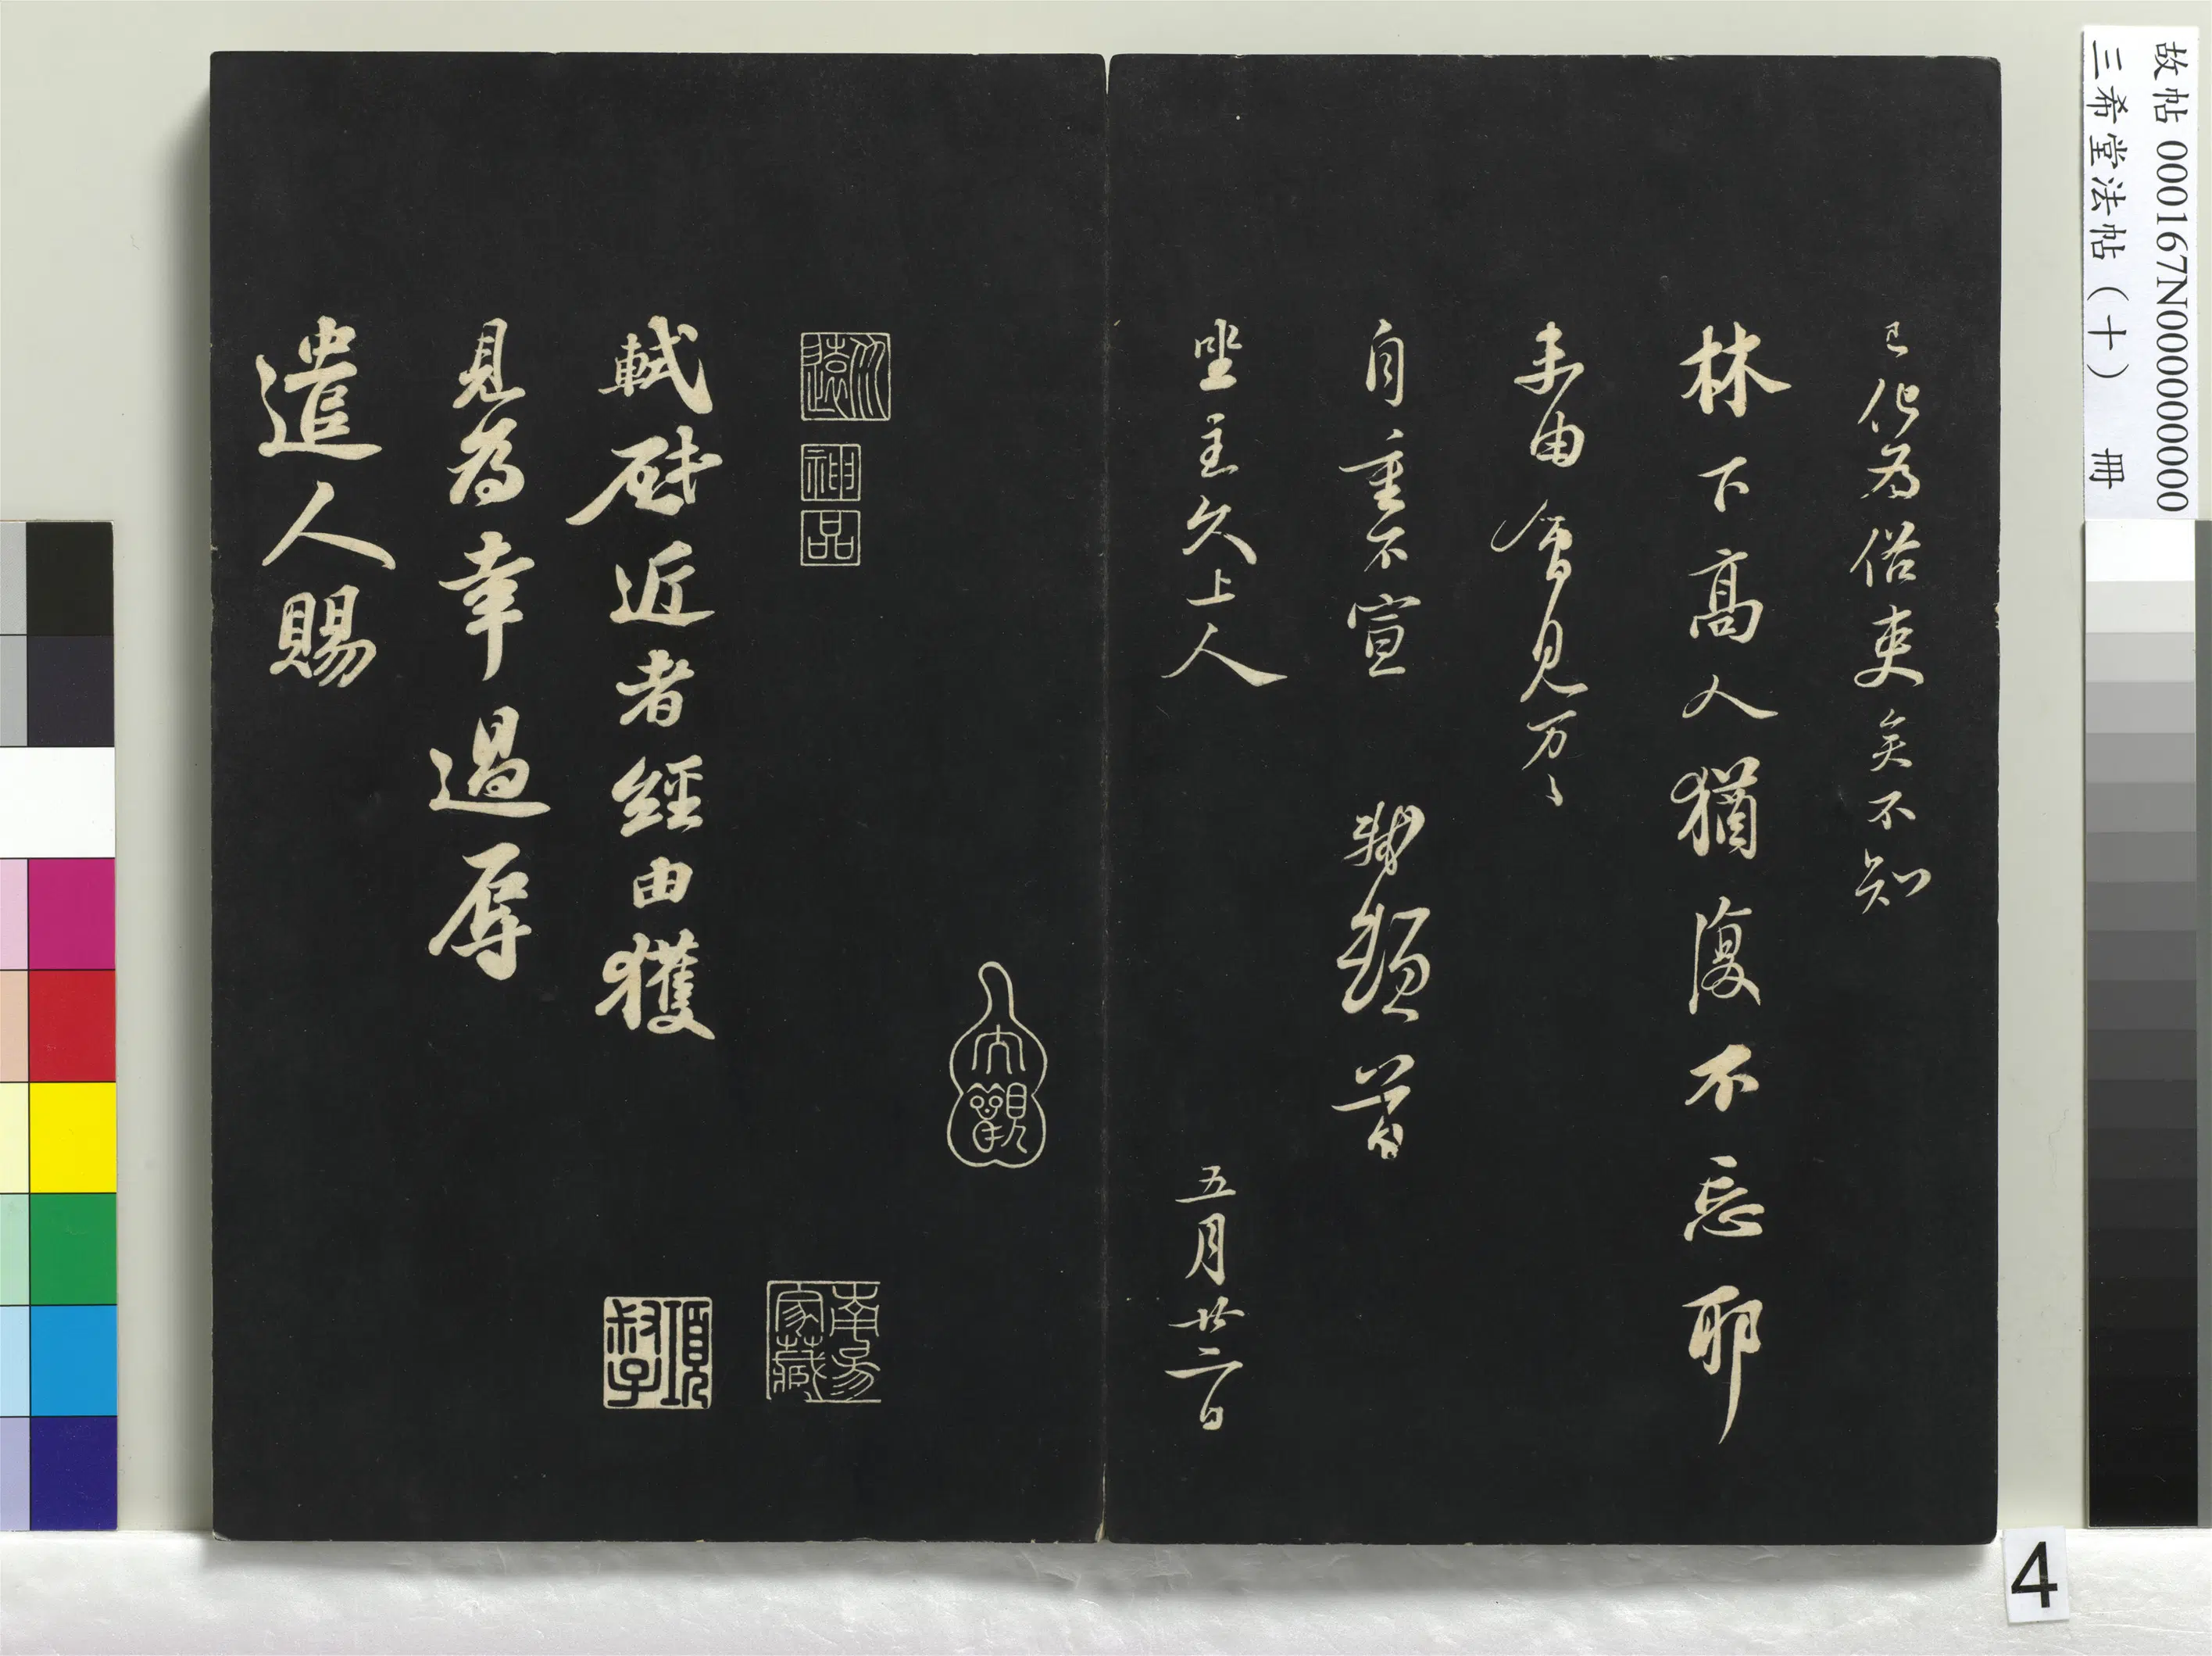 故帖 000167N000000000
三希堂法帖（十） 冊
已化為俗吏矣不知
林下高人猶復不忘耶
未由會見万々
自重不宣 軾頓首
坐主久上人 五月廿二日
神品
南昜家藏
項叔子
軾啟近者經由獲
見為幸過辱
遣人賜
4